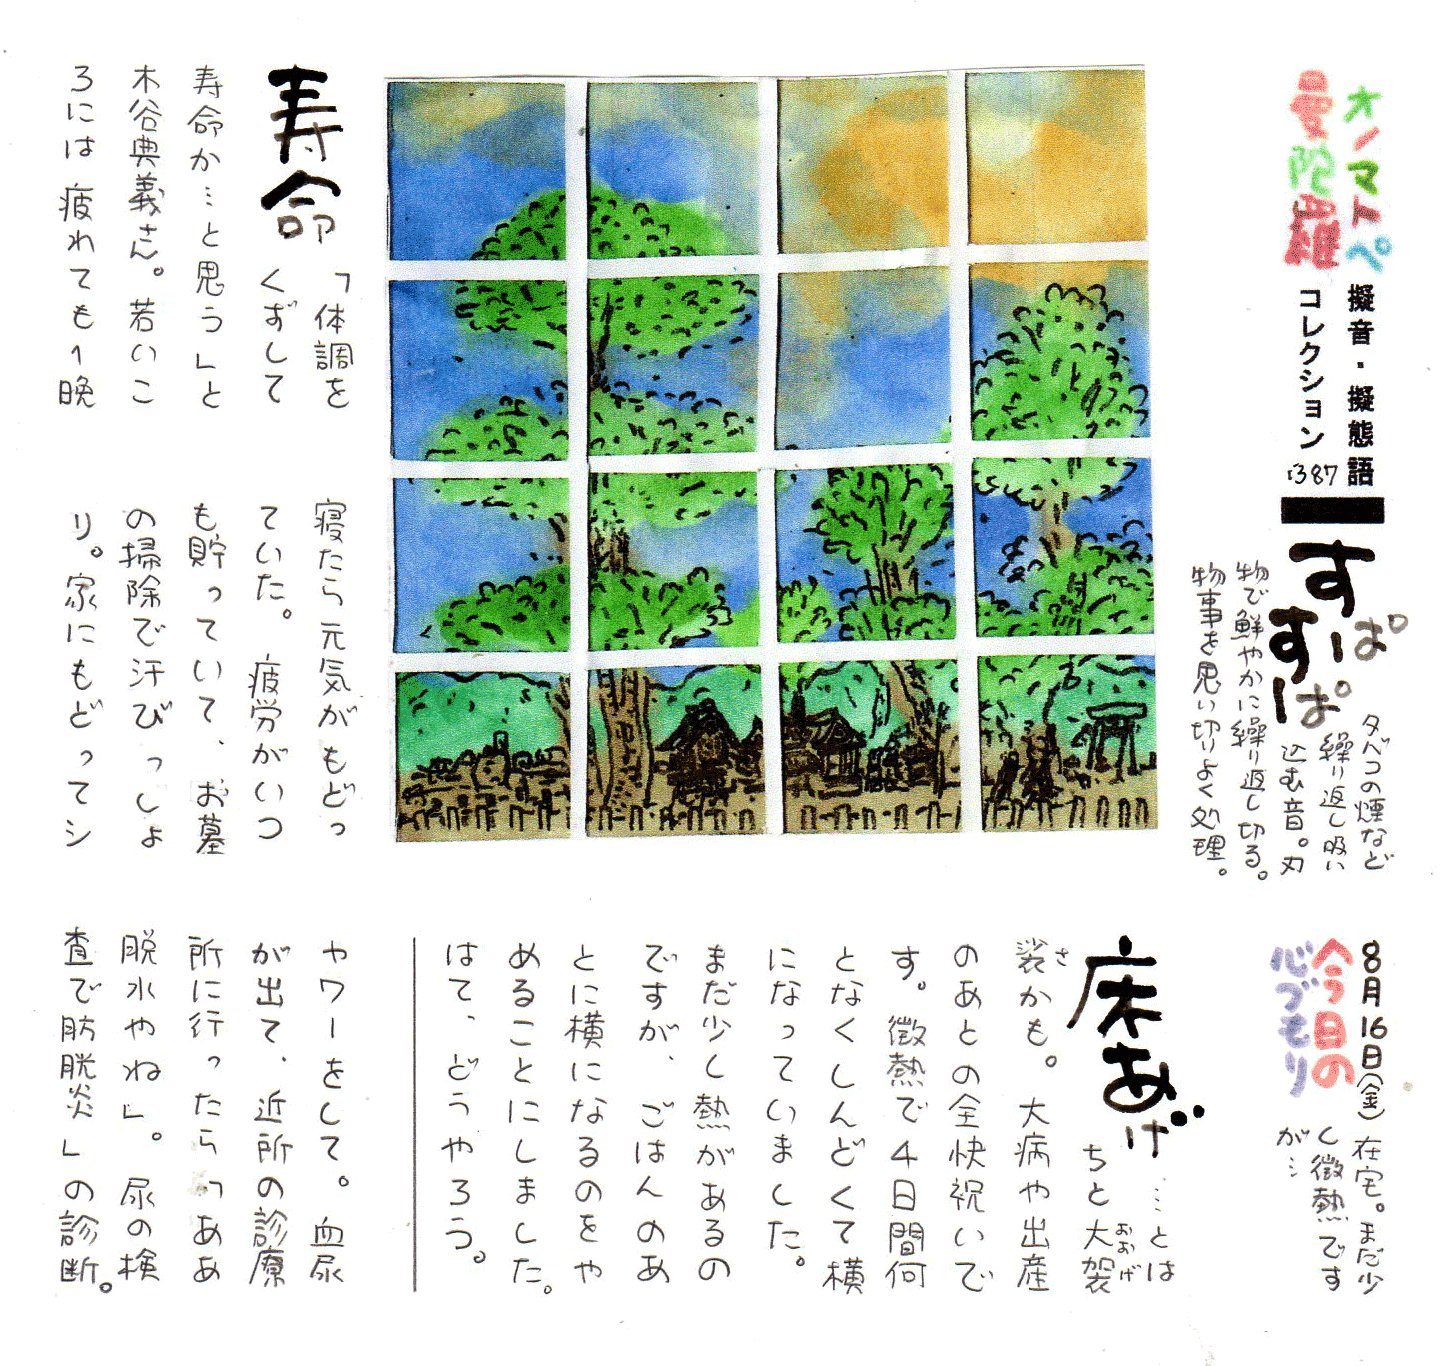 オノマトペ
曼陀羅
擬音・擬態語
コレクション
1387
すーぱ
すーぱ
タバコの煙など
繰り返し吸い
込む音。刃
物で鮮やかに繰り返し切る。
物事を思い切りよく処理。
8月16日(金)
今日の
心づもり
在宅。まだ少
し微熱です
が…
床あげ
…とは
ちと大袈
おおげ
裟かも。大病や出産
さ
のあとの全快祝いで
す。微熱で4日間何
となくしんどくて横
になっていました。
まだ少し熱があるの
ですが、ごはんのあ
とに横になるのをや
めることにしました。
はて、どうやろう。
寿命
「体調を
くずして
寿命か…と思う」と
木谷典義さん。若いこ
ろには疲れても1晩
寝たら元気がもどっ
ていた。疲労がいつ
も貯っていて、お墓
の掃除で汗びっしょ
り。家にもどってシ
ャワーをして。血尿
が出て、近所の診療
所に行ったら「ああ
脱水やね」。尿の検
査で膀胱炎」の診断。